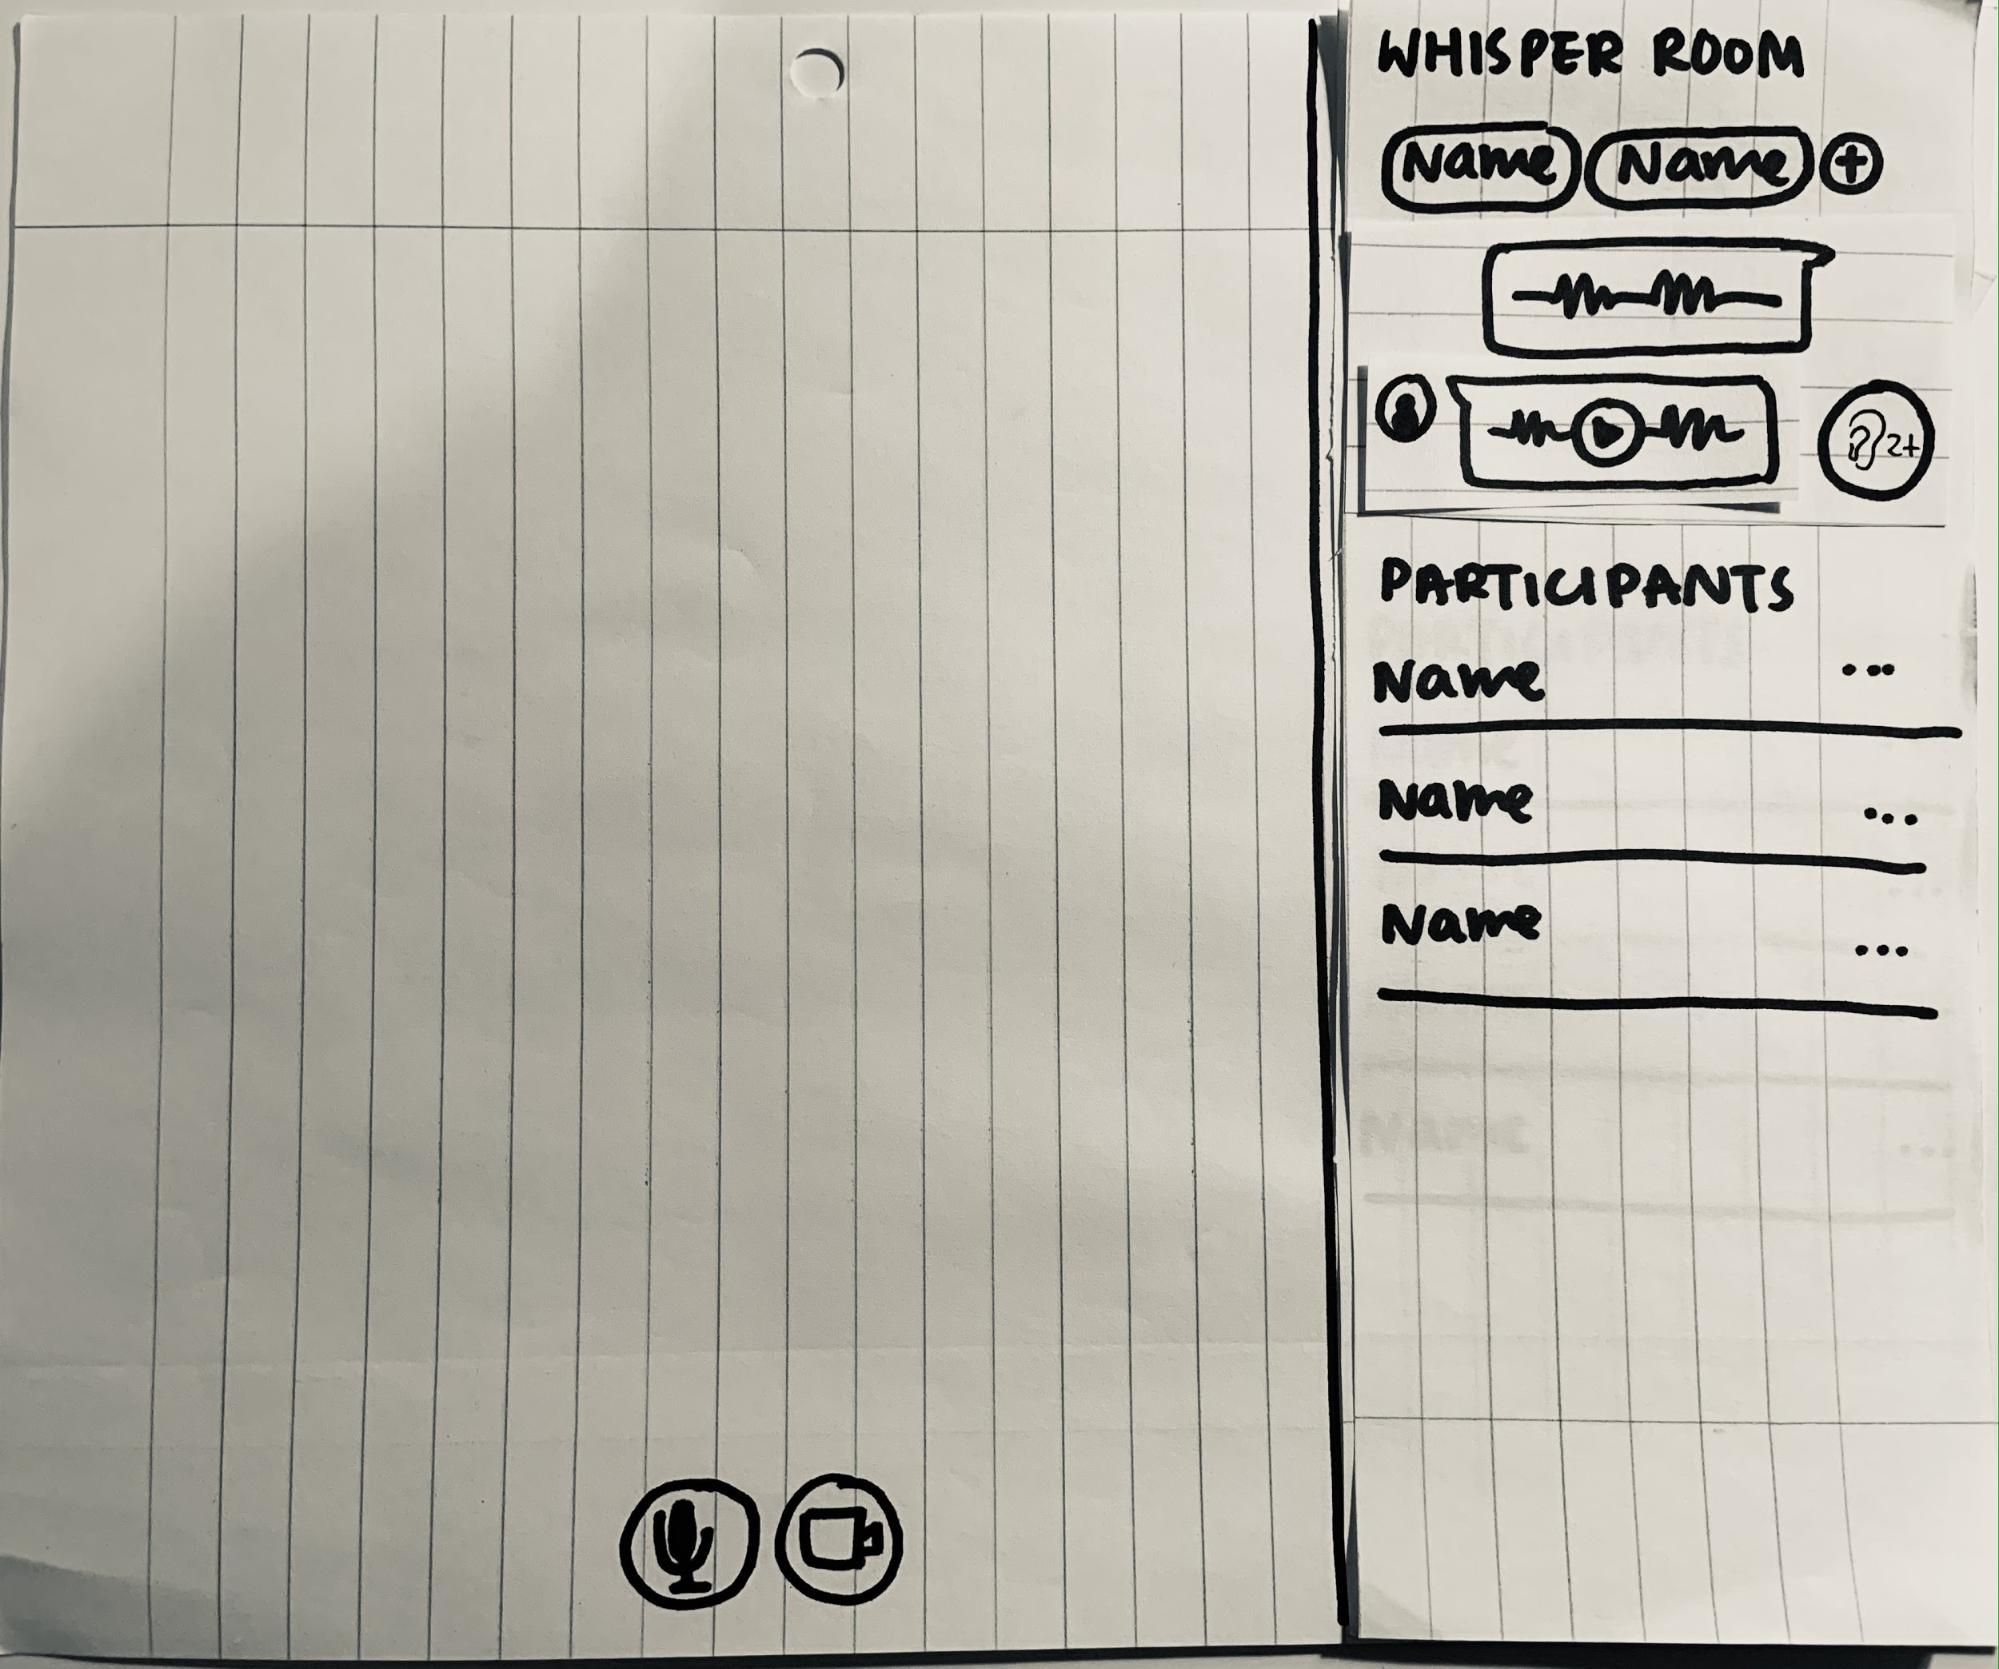 WHISPER ROOM
Name Name +
2+
PARTICIPANTS
Name ...
Name ...
Name ...